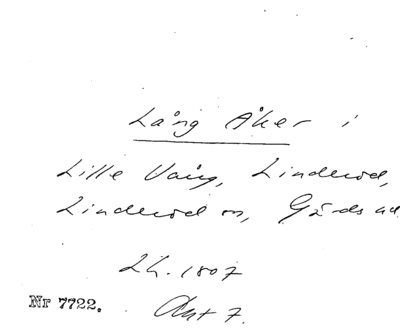 Lång Åker i
Lille Vång, Linderöd,
Linderöd sn, Gärds hd
Lh. 1807
Nr 7722. Akt 7.